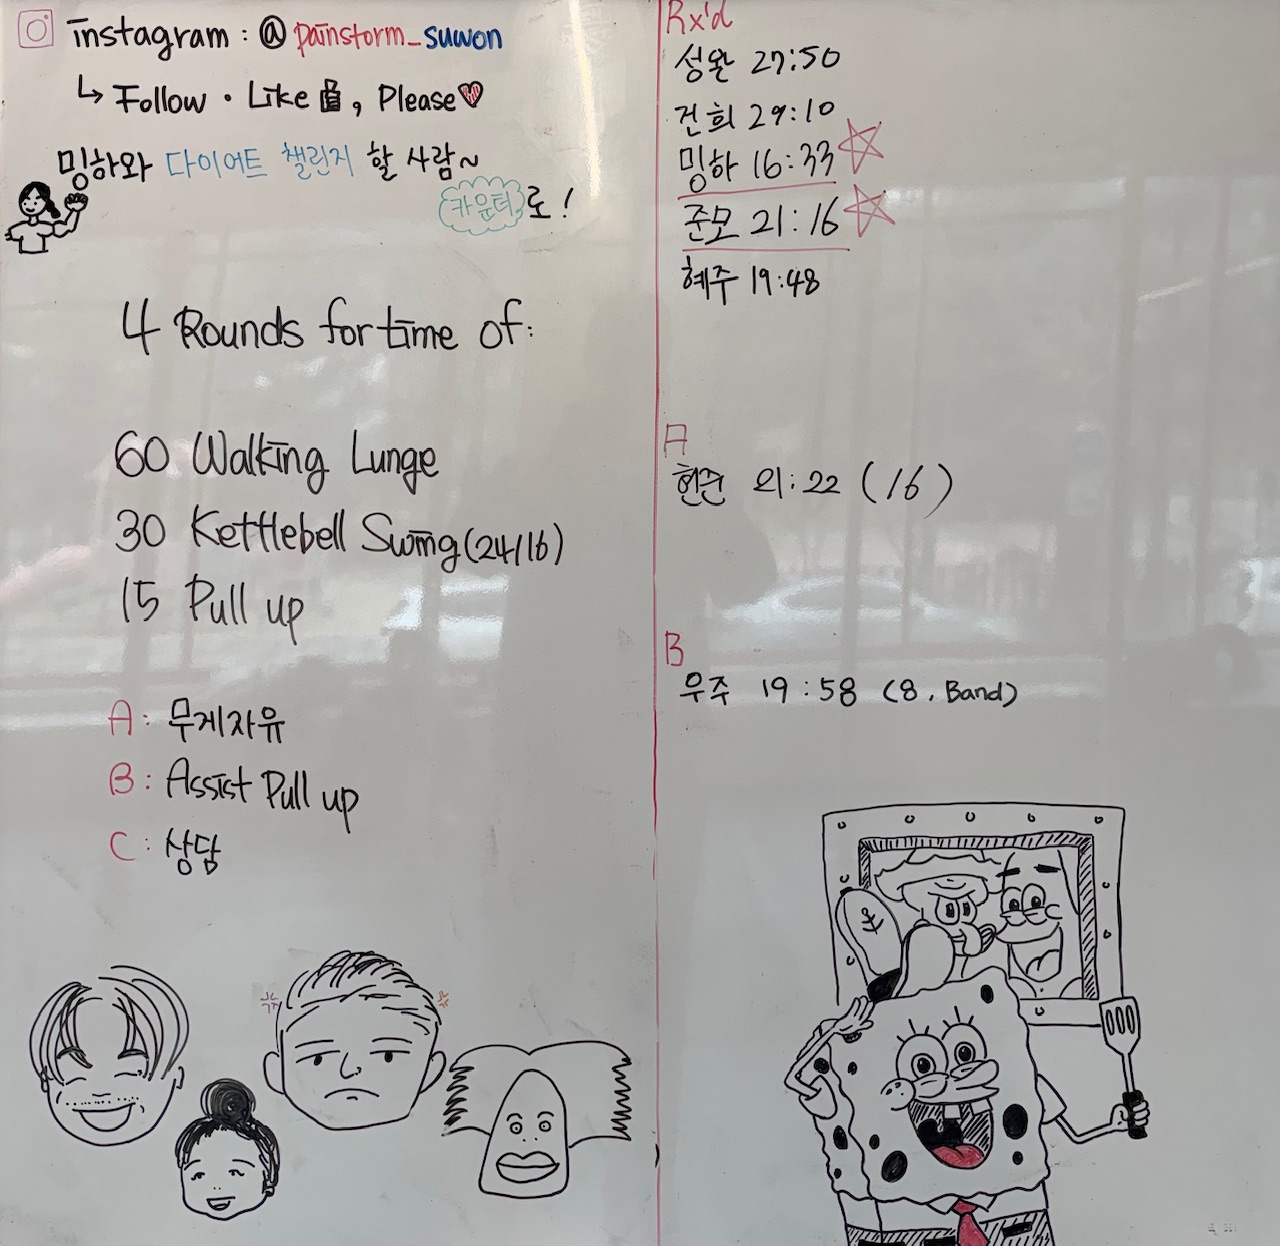 instagram : @painstorm_suwon
↳ Follow · Like , Please
밍하와 다이어트 챌린지 할 사람~
카운터로!
4 Rounds for time of:
60 Walking Lunge
30 Kettlebell Swing(24/16)
15 Pull up
A: 무게자유
B: Assist Pull up
C: 상담
Rx'd
성완 27:50
건희 29:10
밍하 16:33
준모 21:16
혜주 19:48
A
현준 21:22 (16)
B
우주 19:58 (8. Band)